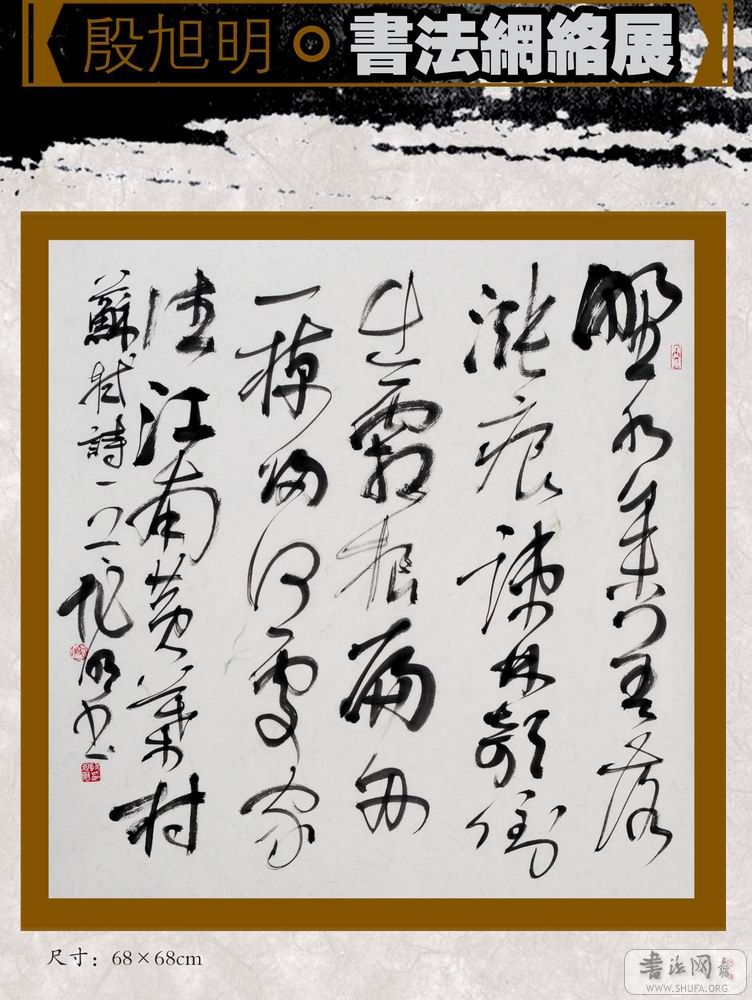 殷旭明 書法網絡展
野水参差落
漲痕疎林欹倒
出霜根扁舟
一棹歸何處家
住江南黄葉村
蘇軾詩一首 旭明書
尺寸：68×68cm
書法网
WWW.SHUFA.ORG